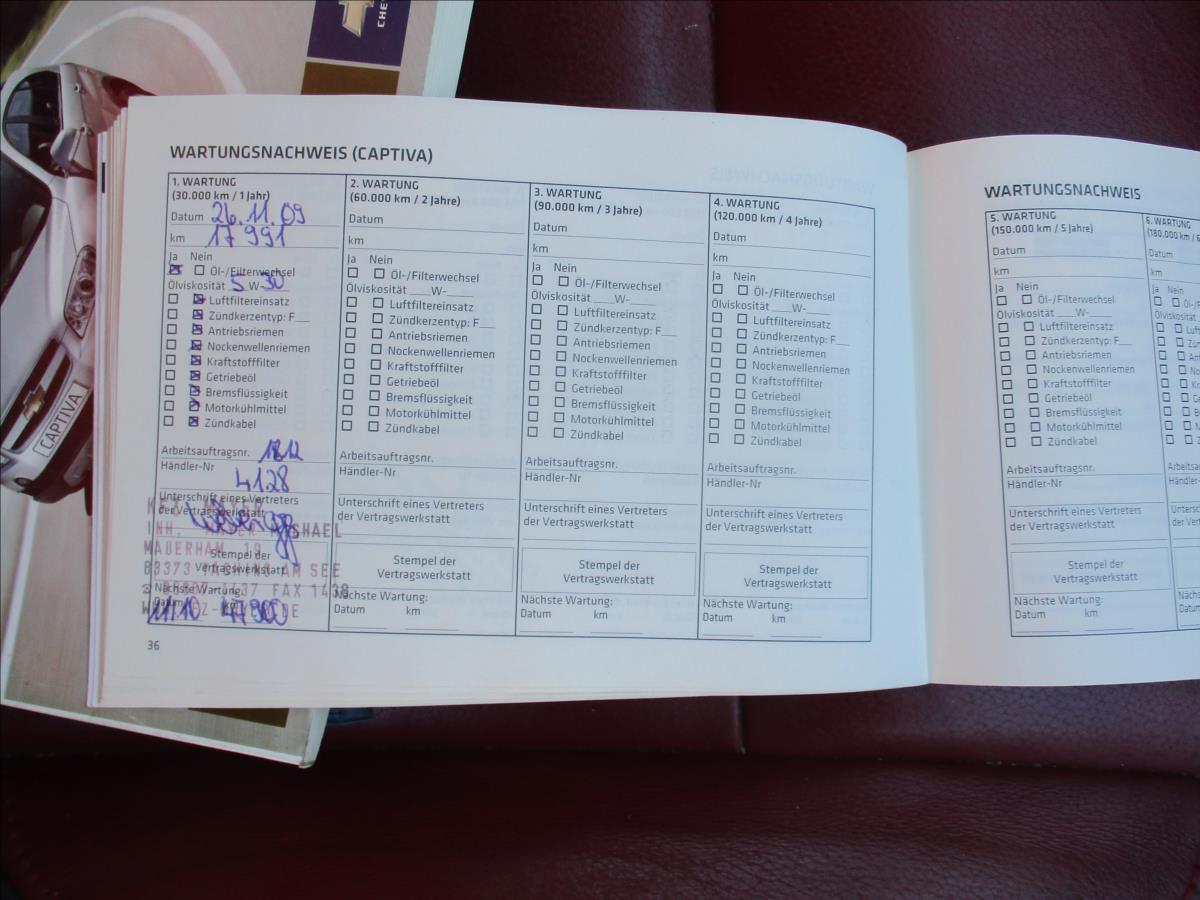 CHE
CAPTIVA
WARTUNGSNACHWEIS (CAPTIVA)
1. WARTUNG
(30.000 km / 1 Jahr)
Datum 26.11.09
km 17991
Ja Nein
Öl-/Filterwechsel
Ölviskosität 5 W-30
Luftfiltereinsatz
Zündkerzentyp: F__
Antriebsriemen
Nockenwellenriemen
Kraftstofffilter
Getriebeöl
Bremsflüssigkeit
Motorkühlmittel
Zündkabel
Arbeitsauftragsnr.
Händler-Nr 4128
Unterschrift eines Vertreters
der Vertragswerkstatt
INH.
MAUERHAM
Stempel der
Vertragswerkstatt
83373 AM SEE
FAX 1438
Nächste Wartung:
Datum km
11/10 47900
36
2. WARTUNG
(60.000 km / 2 Jahre)
Datum
km
Ja Nein
Öl-/Filterwechsel
Ölviskosität ____W-____
Luftfiltereinsatz
Zündkerzentyp: F__
Antriebsriemen
Nockenwellenriemen
Kraftstofffilter
Getriebeöl
Bremsflüssigkeit
Motorkühlmittel
Zündkabel
Arbeitsauftragsnr.
Händler-Nr
Unterschrift eines Vertreters
der Vertragswerkstatt
Stempel der
Vertragswerkstatt
Nächste Wartung:
Datum km
3. WARTUNG
(90.000 km / 3 Jahre)
Datum
km
Ja Nein
Öl-/Filterwechsel
Ölviskosität ____W-____
Luftfiltereinsatz
Zündkerzentyp: F__
Antriebsriemen
Nockenwellenriemen
Kraftstofffilter
Getriebeöl
Bremsflüssigkeit
Motorkühlmittel
Zündkabel
Arbeitsauftragsnr.
Händler-Nr
Unterschrift eines Vertreters
der Vertragswerkstatt
Stempel der
Vertragswerkstatt
Nächste Wartung:
Datum km
4. WARTUNG
(120.000 km / 4 Jahre)
Datum
km
Ja Nein
Öl-/Filterwechsel
Ölviskosität ____W-____
Luftfiltereinsatz
Zündkerzentyp: F__
Antriebsriemen
Nockenwellenriemen
Kraftstofffilter
Getriebeöl
Bremsflüssigkeit
Motorkühlmittel
Zündkabel
Arbeitsauftragsnr.
Händler-Nr
Unterschrift eines Vertreters
der Vertragswerkstatt
Stempel der
Vertragswerkstatt
Nächste Wartung:
Datum km
WARTUNGSNACHWEIS
5. WARTUNG
(150.000 km / 5 Jahre)
Datum
km
Ja Nein
Öl-/Filterwechsel
Ölviskosität ____W-____
Luftfiltereinsatz
Zündkerzentyp: F__
Antriebsriemen
Nockenwellenriemen
Kraftstofffilter
Getriebeöl
Bremsflüssigkeit
Motorkühlmittel
Zündkabel
Arbeitsauftragsnr.
Händler-Nr
Unterschrift eines Vertreters
der Vertragswerkstatt
Stempel der
Vertragswerkstatt
Nächste Wartung:
Datum km
6. WARTUNG
(180.000 km / 6
Datum
km
Ja Nein
Ölviskosität
Arbeitsauft
Händler-Nr
Untersch
der Vertr
Nächste
Datum